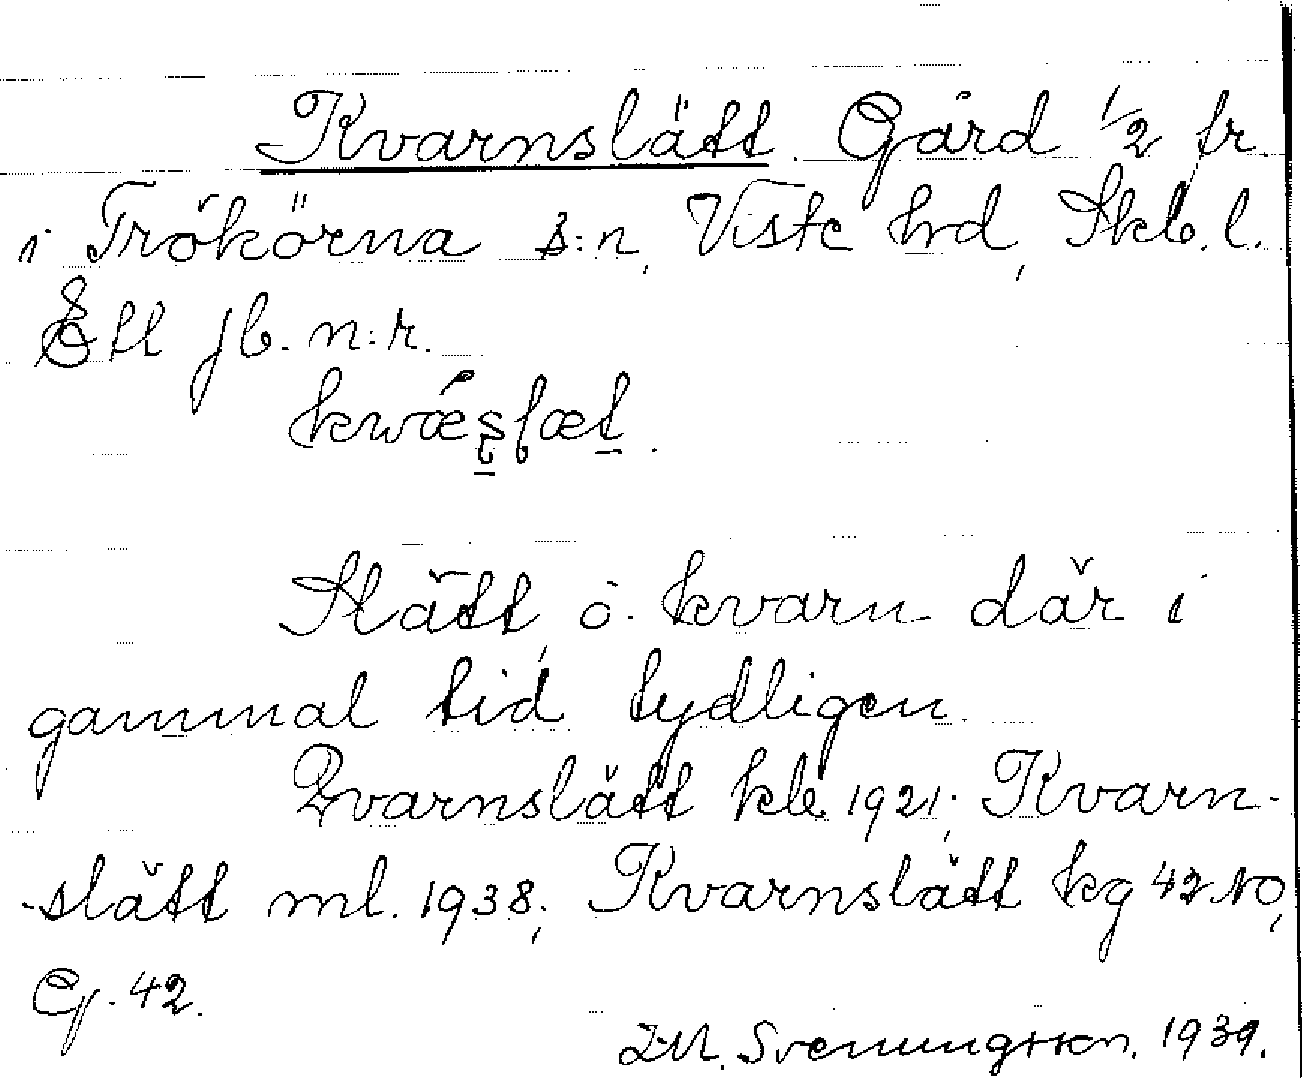 Kvarnslätt. Gård 1/2 fr
i Trökörna s:n, Viste hrd, Skb. l.
Ett jb. n:r.
Slätt, o. kvarn där i
gammal tid, tydligen.
Qvarnslätt kle 1921; Kvarn-
-slätt ml. 1938; Kvarnslätt kg 42 NO,
Ej. 42.
Svenungsson. 1939.